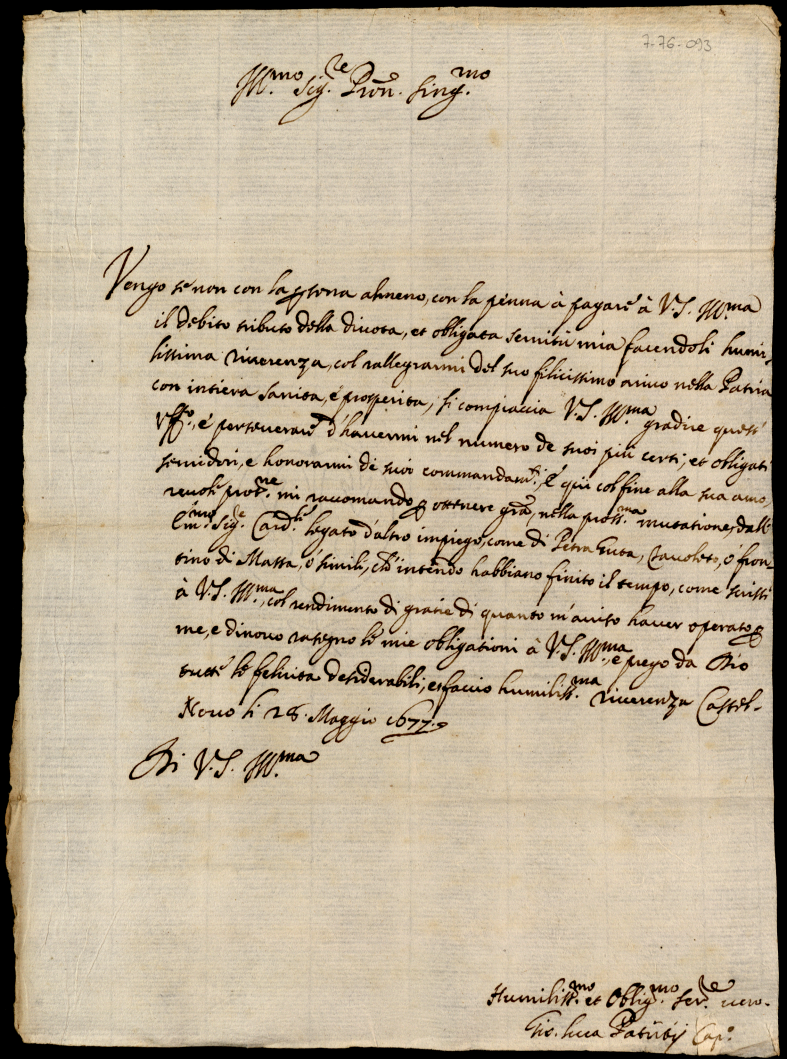 7-76-093
Ill.mo Sig.re Pron. Sing.mo
Vengo se non con la persona almeno, con la penna à pagare à V.S. Ill.ma
il debito tributo della divota, et obligata servitù mia facendoli humi-
lissima riverenza, col rallegrarmi del suo felicissimo arivo nella Patria
con intiera sanita, e prosperita, si compiaccia V.S. Ill.ma gradire questi
e perseverare d'havermi nel numero de suoi più certi, et obligati
servidori, e honorarmi de suoi commandam.ti, e qui col fine alla sua amo,
revole prot.ne mi racomando p ottenere gra, nella pross.ma mutatione, dall'
Em.mo Sig.re Card.le legato d'altro impiego, come di Petra Guta, Tavoleto, o fron-
tino di Massa, ò simili, che intendo habbiano finito il tempo, come scrissi
à V.S. Ill.ma, col rendimento di gratie di quanto m'aviso haver operato p
me, e dinovo rasegno le mie obligationi à V.S. Ill.ma, e prego da Dio
tutte le felicita desiderabili, e faccio humiliss.ma riverenza Castel-
Novo li 28. Maggio 1677.
Di V.S. Ill.ma
Humiliss.mo et Oblig.mo Ser.re vero.
Gio. Luca Cap.o